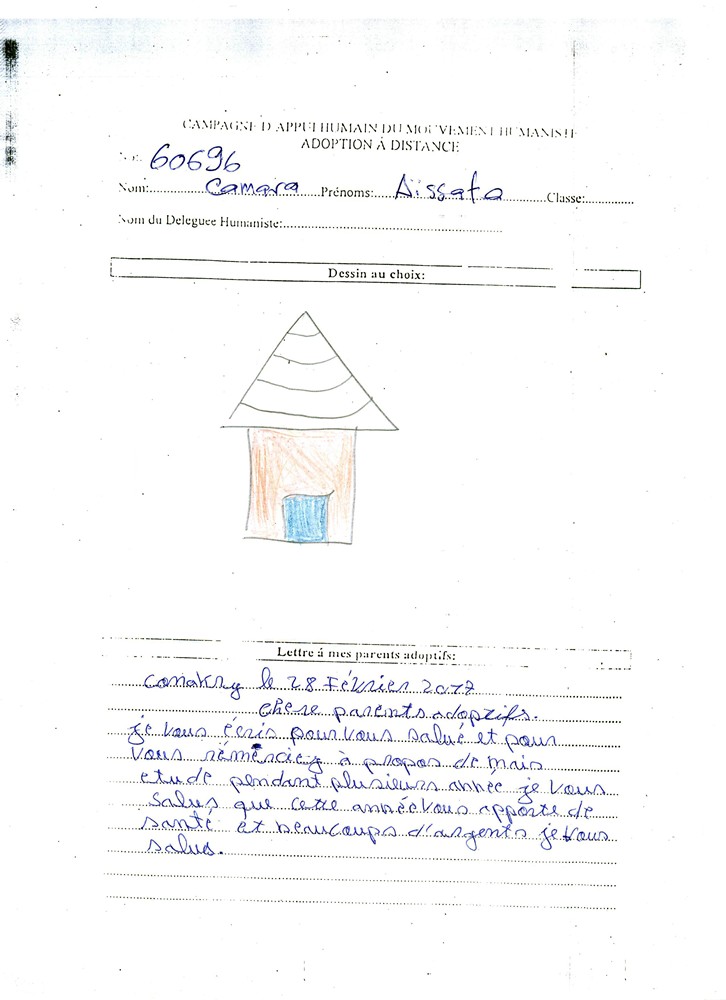 CAMPAGNE D'APPUI HUMAIN DU MOUVEMENT HUMANISTE
ADOPTION À DISTANCE
60696
Nom: Camara Prénoms: Aissata Classe:
Nom du Deleguee Humaniste:
Dessin au choix:
Lettre á mes parents adoptifs:
Conakry le 28 Février 2017
chere parents adoptifs.
je vous écris pour vous salué et pour
vous rémérciez à propos de mais
etude pendant plusieurs année je vous
salus que cette année vous apporte de
santé et beaucoups d'argents je vous
salus.